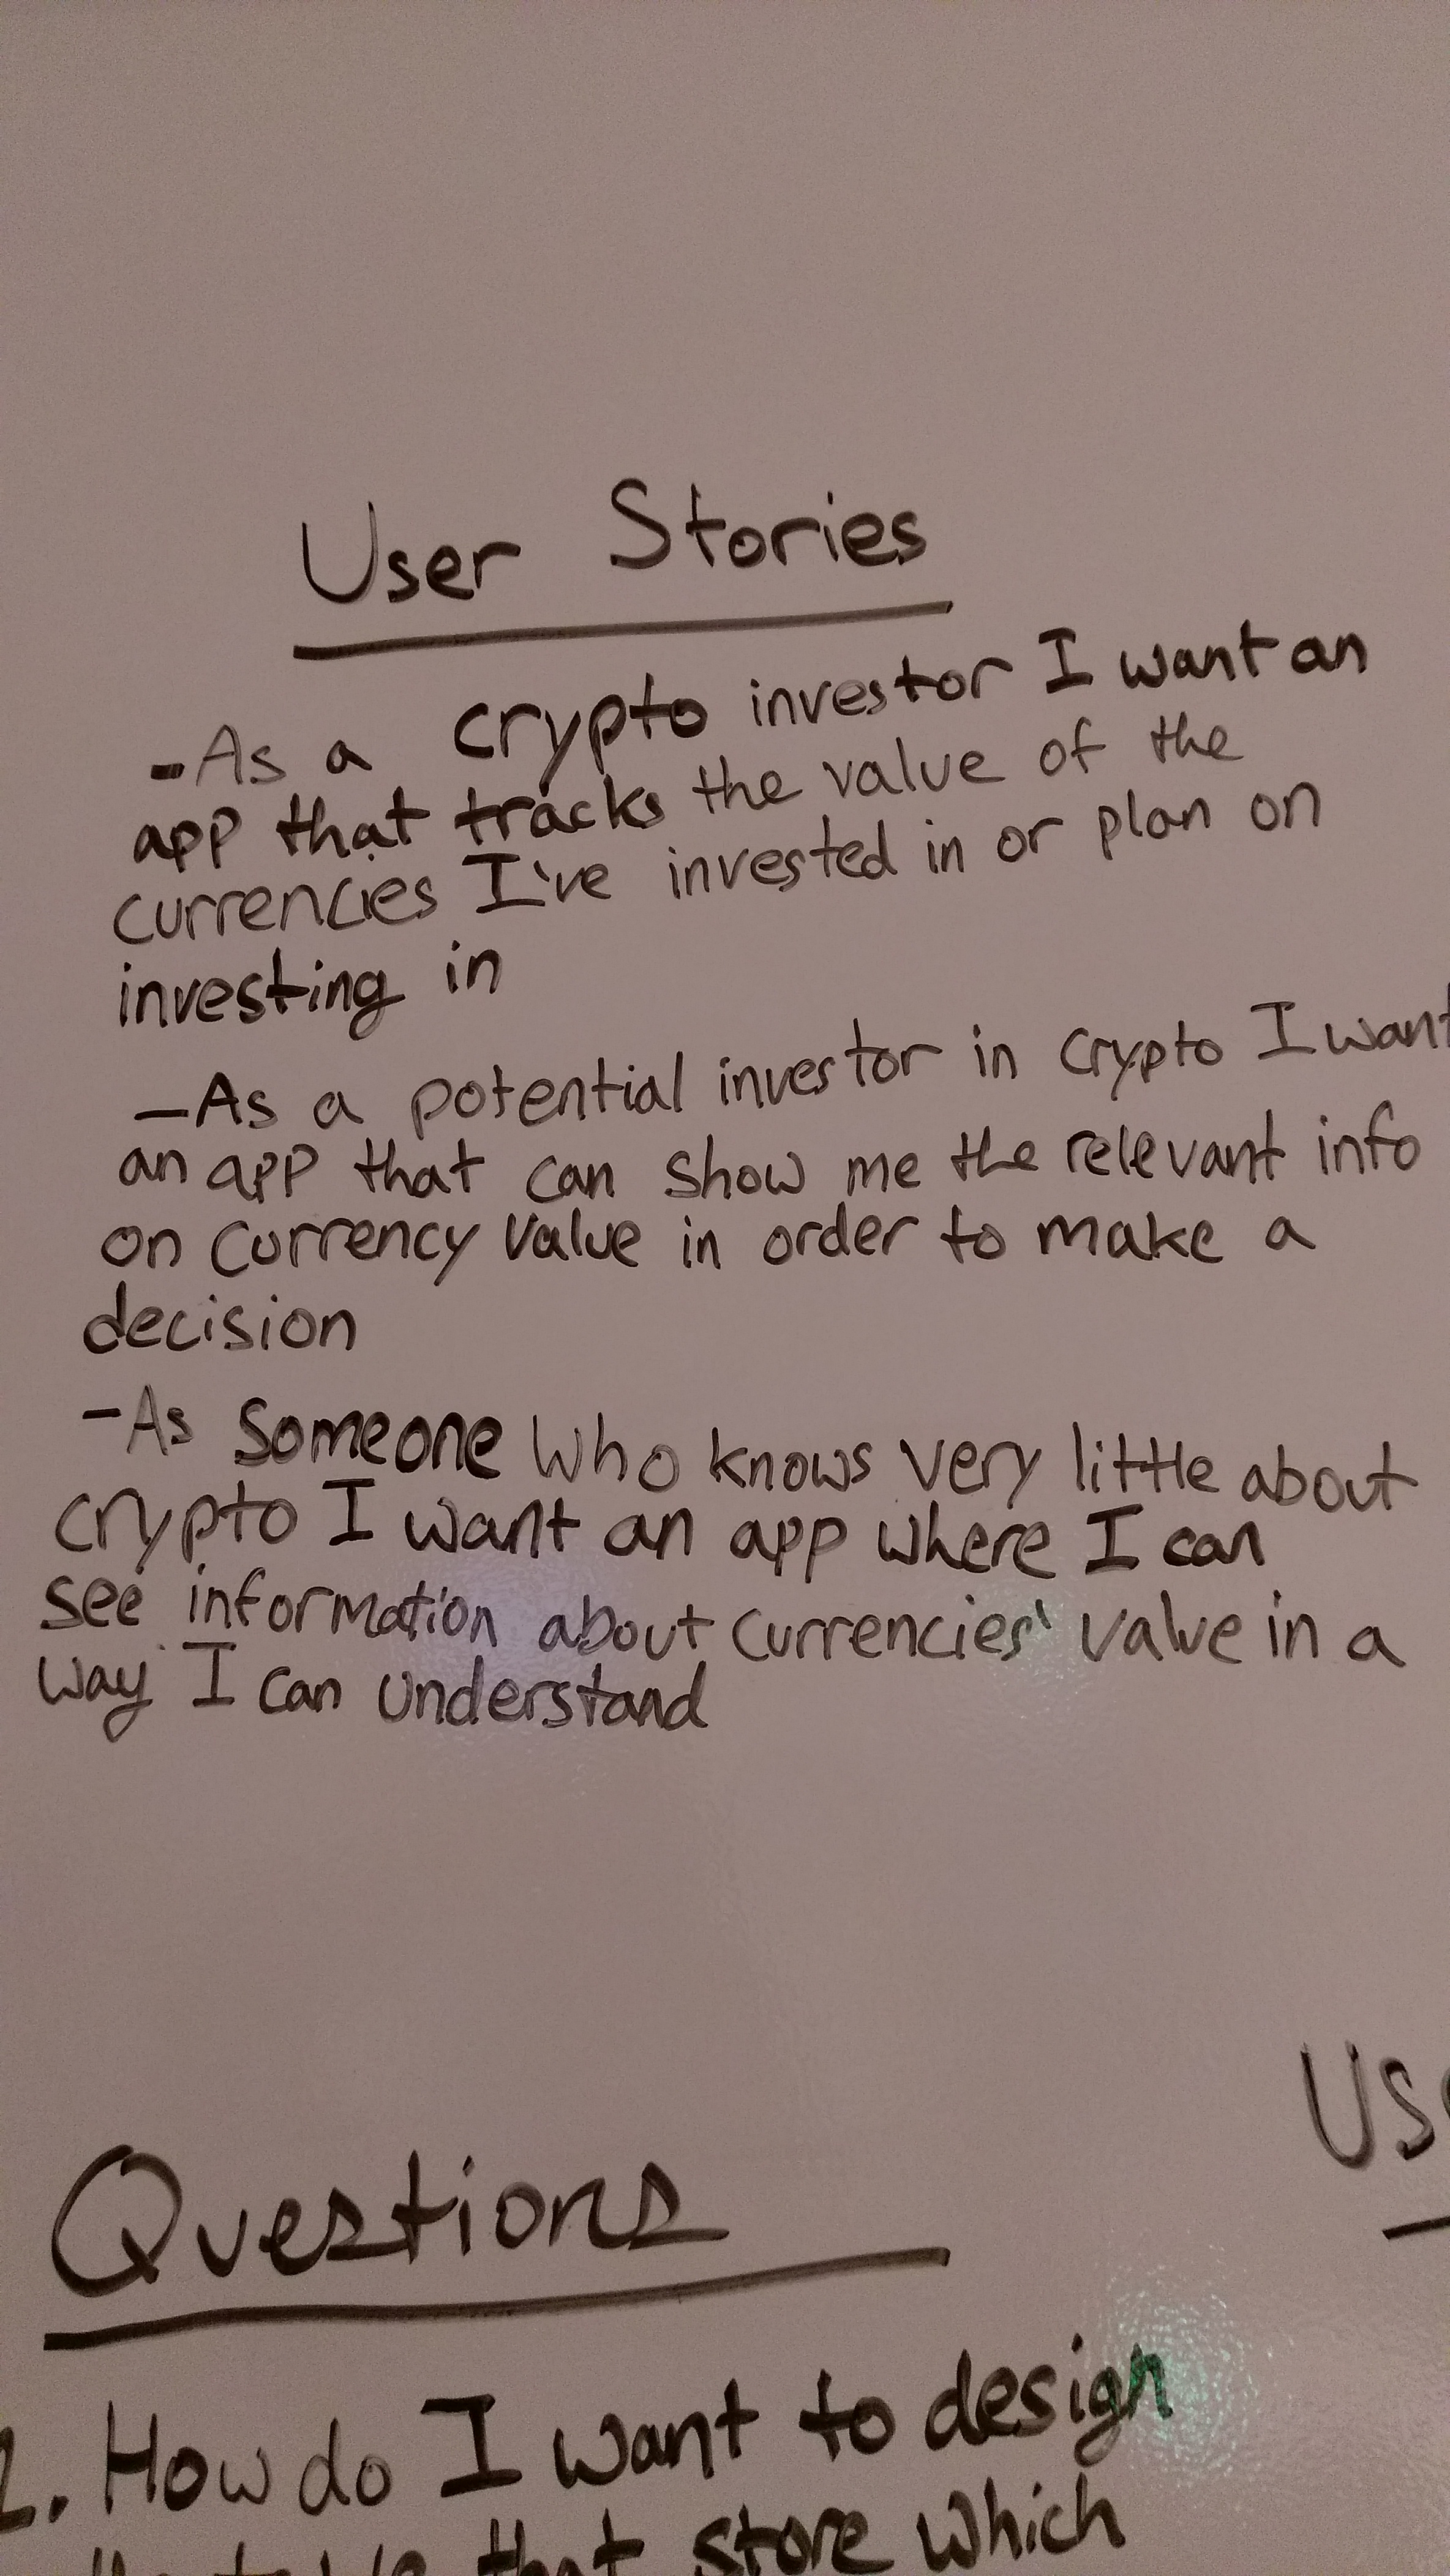 User Stories
-As a crypto investor I want an
app that tracks the value of the
currencies I've invested in or plan on
investing in
-As a potential investor in crypto I want
an app that can show me the relevant info
on currency value in order to make a
decision
-As someone who knows very little about
crypto I want an app where I can
see information about currencies' value in a
way I can understand
Questions
How do I want to design
that store which